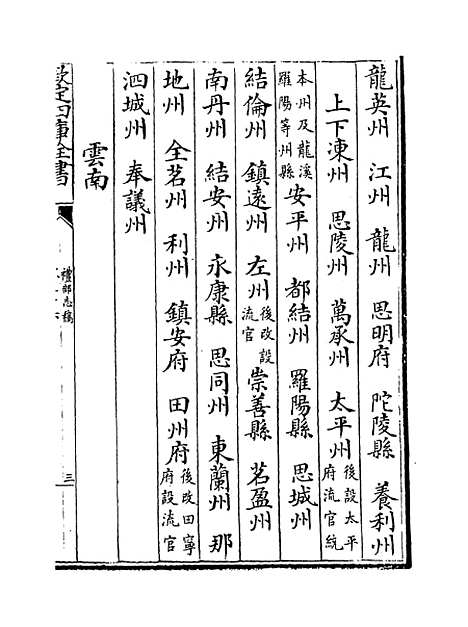 龍英州 江州 龍州 思明府 陀陵縣 養利州
上下凍州 思陵州 萬承州 太平州後設太平府流官統
本州及龍溪羅陽等州縣 安平州 都結州 羅陽縣 思城州
結倫州 鎮遠州 左州後改設流官 崇善縣 茗盈州
南丹州 結安州 永康縣 思同州 東蘭州 那
地州 全茗州 利州 鎮安府 田州府後改田寧府設流官
泗城州 奉議州
雲南
欽定四庫全書
禮部志稿
三